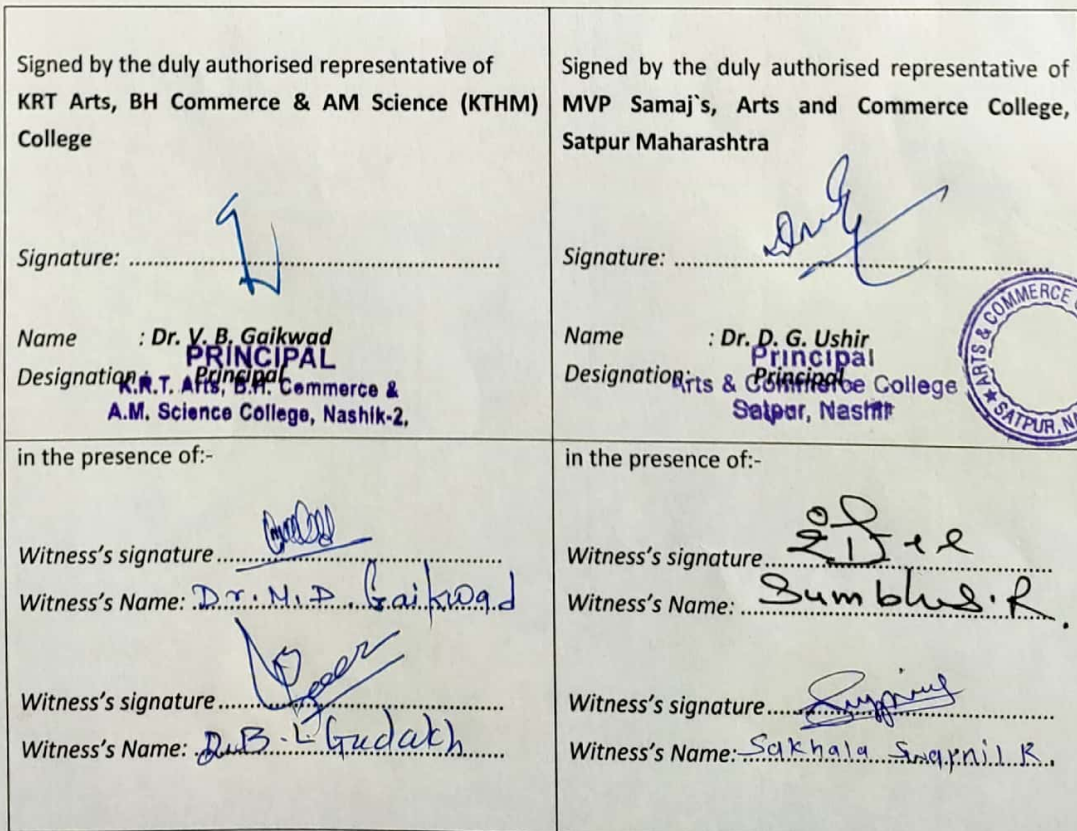 Signed by the duly authorised representative of
KRT Arts, BH Commerce & AM Science (KTHM)
College
Signature: ........................................................
Name : Dr. V. B. Gaikwad
PRINCIPAL
Designation : Principal
K.R.T. Arts, B.H. Commerce &
A.M. Science College, Nashik-2.
in the presence of:-
Witness's signature ............................................
Witness's Name: Dr. M. D. Gaikwad
Witness's signature ............................................
Witness's Name: Dr. B. L Gudakh
Signed by the duly authorised representative of
MVP Samaj`s, Arts and Commerce College,
Satpur Maharashtra
Signature: ........................................................
Name : Dr. D. G. Ushir
Principal
Designation: Principal
Arts & Commerce College
Satpur, Nashik
ARTS & COMMERCE
★ SATPUR, NA
in the presence of:-
Witness's signature ............................................
Witness's Name: Sumbhus. R.
Witness's signature ............................................
Witness's Name: Sakhala Swapnil R.